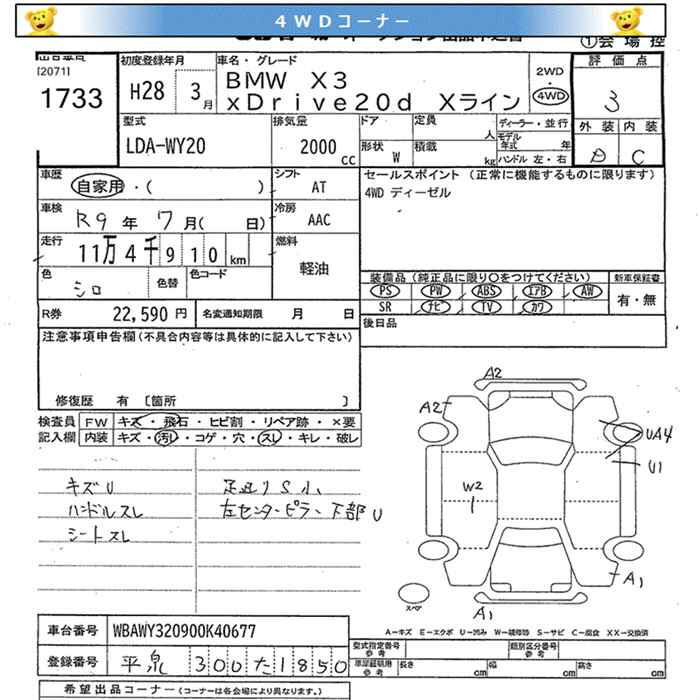 4WDコーナー
①会場控
[2071]
1733
初度登録年月
H28 3月
車名・グレード
BMW X3
xDrive20d Xライン
2WD
・
4WD
評価点
3
外装 内装
D C
型式
LDA-WY20
排気量
2000 cc
ドア
定員 人
ディーラー・並行
モデル年式 年
形状 W
積載 kg
ハンドル 左・右
車歴
自家用・( )
シフト
AT
セールスポイント (正常に機能するものに限ります)
4WD ディーゼル
車検
R9年 7月( 日)
冷房
AAC
走行
11万4千910km
燃料
軽油
色
シロ
色替
色コード
装備品(純正品に限り○をつけてください)
新車保証書
PS PW ABS エアB AW
有・無
SR ナビ TV カワ
R券 22,590円
名変通知期限 月 日
後日品
注意事項申告欄(不具合内容等は具体的に記入して下さい)
修復歴 有 〔箇所 〕
検査員記入欄
FW キズ・飛石・ヒビ割・リペア跡・×要
内装 キズ・汚レ・コゲ・穴・スレ・キレ・破レ
キズU
ハンドルスレ
シートスレ
足廻りS小
左センターピラー下部U
A2
A2
UA4
U1
W2
A1
A1
スペア
A-キズ E-エクボ U-凹み W-補修跡 S-サビ C-腐食 XX-交換済
車台番号 WBAWY320900K40677
登録番号 平泉 300 た 1850
型式指定番号 参考
類別区分番号 参考
車庫証明用 参考
長さ cm
幅 cm
高さ cm
希望出品コーナー(コーナーは各会場により異なります。)